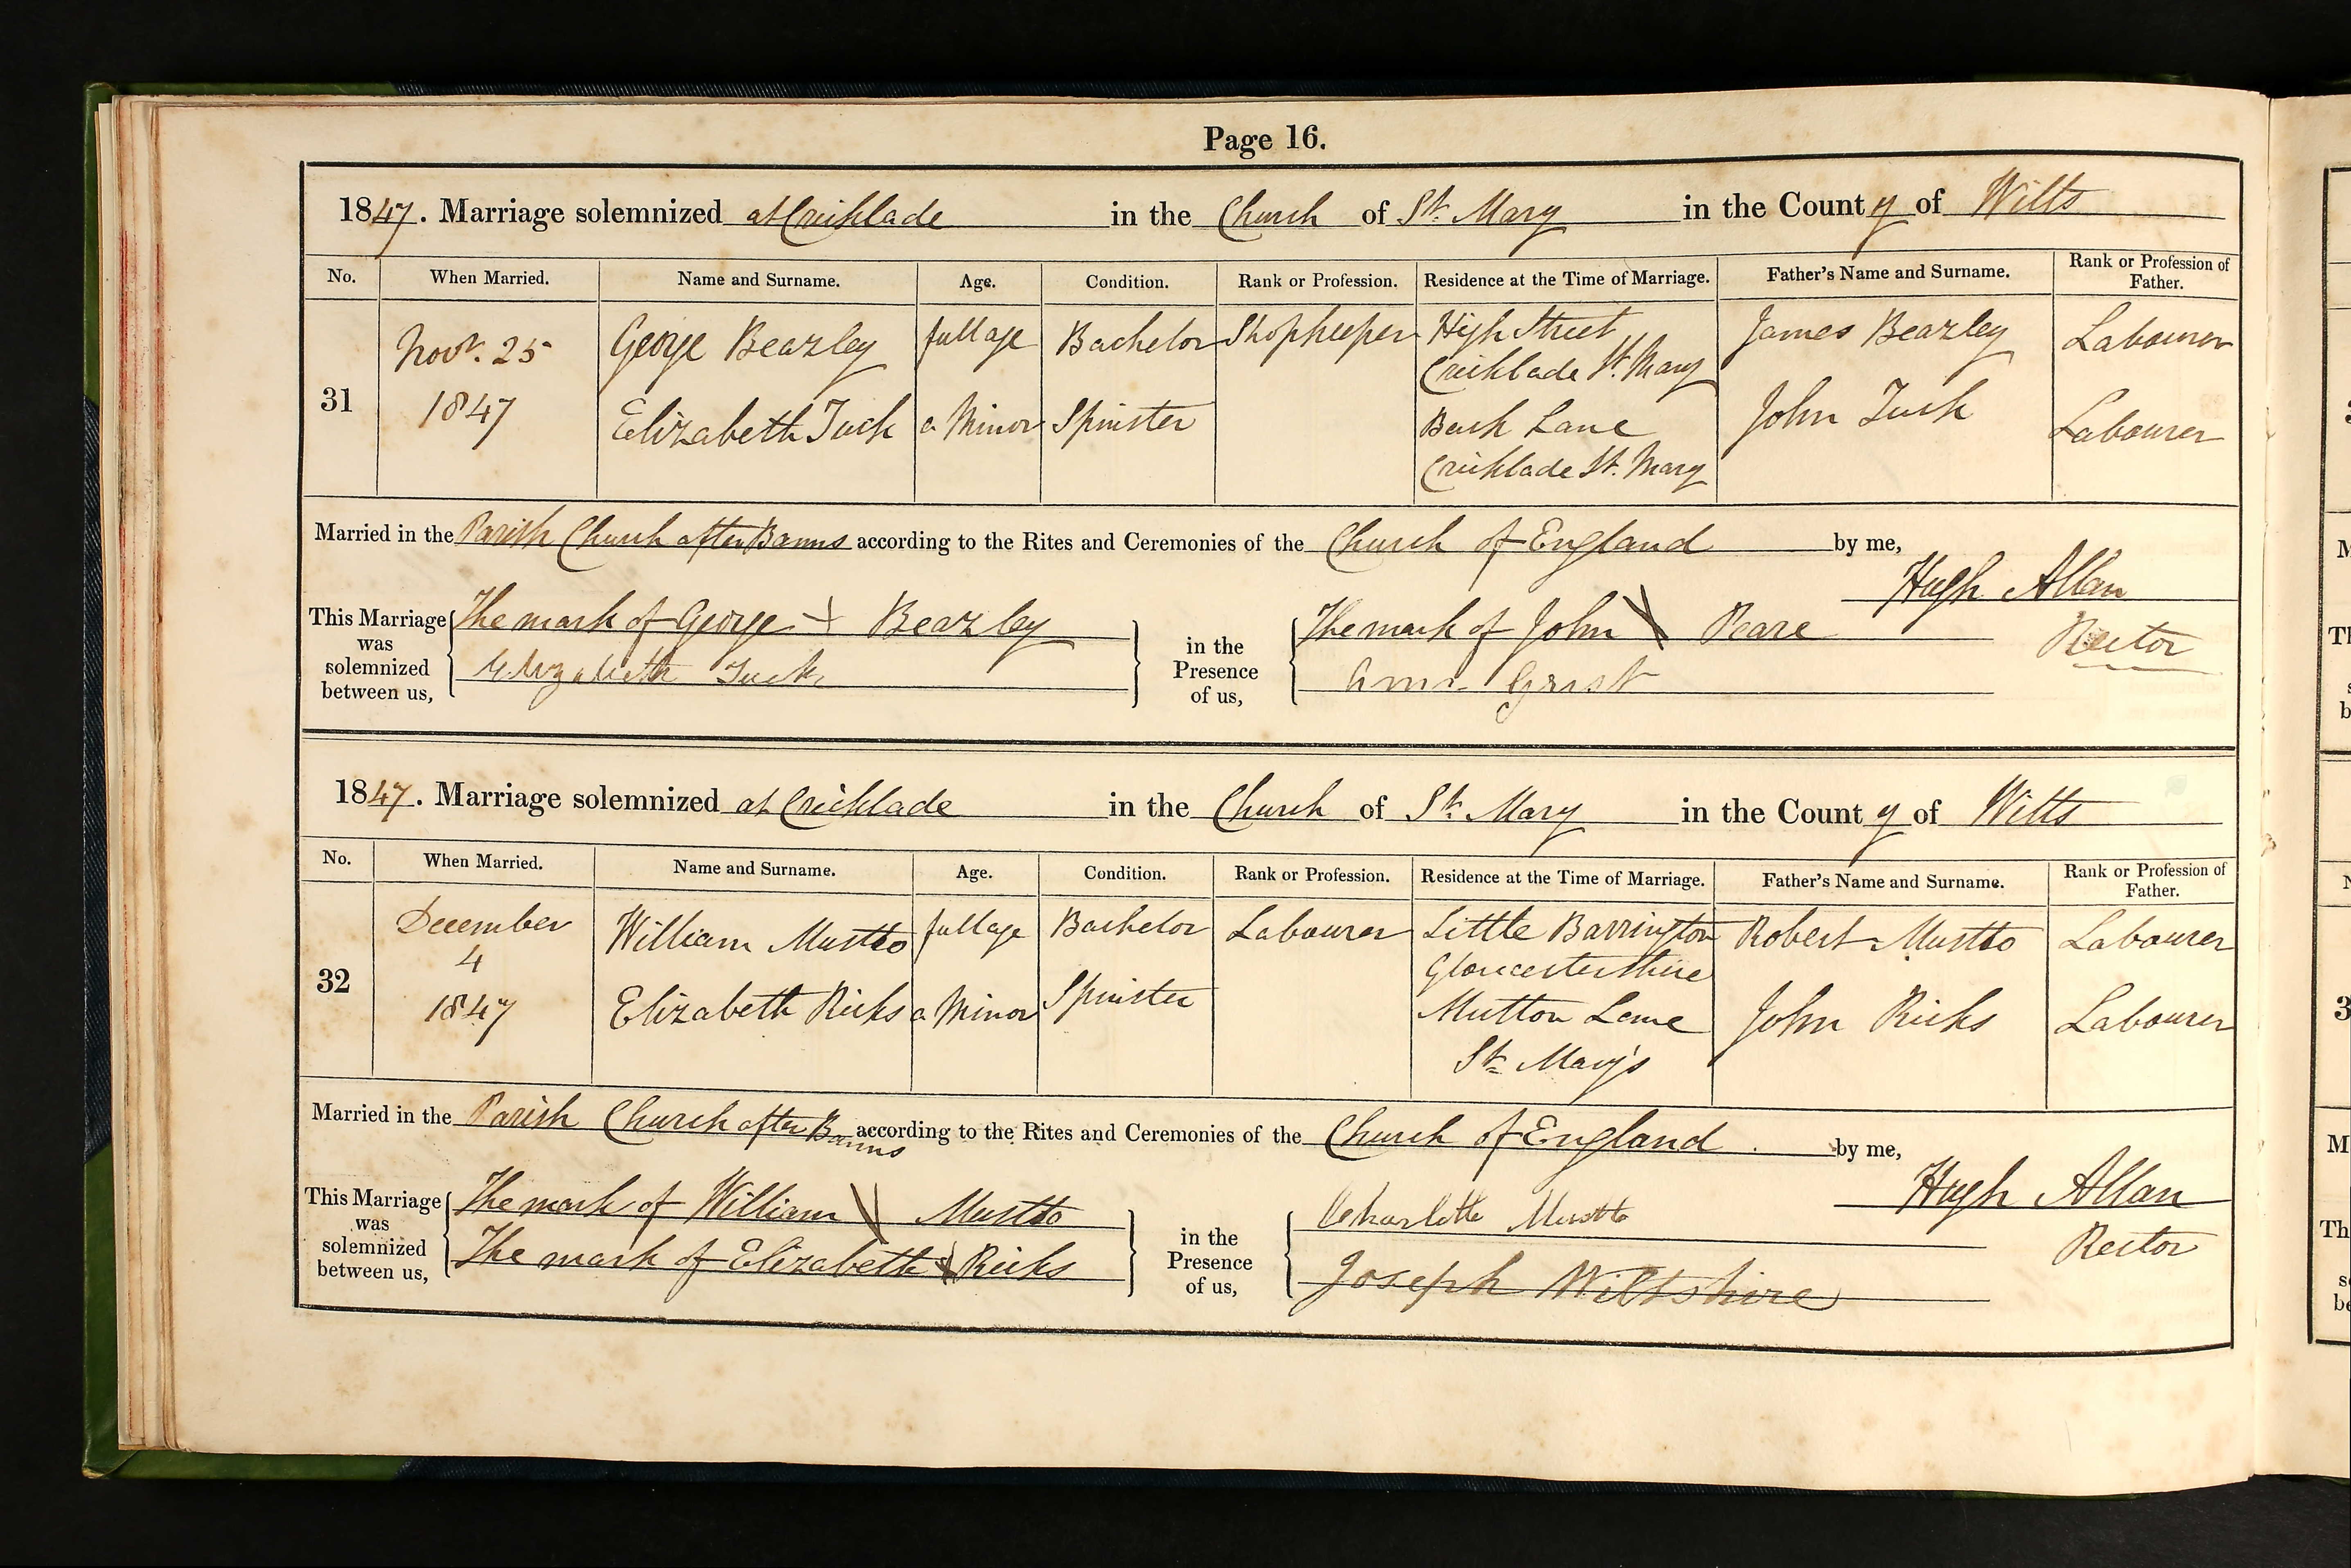 Page 16.
1847. Marriage solemnized at Cricklade in the Church of St. Mary in the County of Wilts
No. When Married. Name and Surname. Age. Condition. Rank or Profession. Residence at the Time of Marriage. Father's Name and Surname. Rank or Profession of Father.
31
Novr. 25 George Beazley full age Bachelor Shopkeeper High Street James Beazley Labourer
Cricklade St. Mary
1847 Elizabeth Tuck a Minor Spinster Back Lane John Tuck Labourer
Cricklade St. Mary
Married in the Parish Church after Banns according to the Rites and Ceremonies of the Church of England by me,
Hugh Allan
Rector
This Marriage was solemnized between us,
The mark of George X Beazley
Elizabeth Tuck
in the Presence of us,
The mark of John X Peare
Ann Grist
1847. Marriage solemnized at Cricklade in the Church of St. Mary in the County of Wilts
No. When Married. Name and Surname. Age. Condition. Rank or Profession. Residence at the Time of Marriage. Father's Name and Surname. Rank or Profession of Father.
32
December William Mustto full age Bachelor Labourer Little Barrington Robert Mustto Labourer
4 Gloucestershire
1847 Elizabeth Ricks a Minor Spinster Mutton Lane John Ricks Labourer
St. Mary's
Married in the Parish Church after Banns according to the Rites and Ceremonies of the Church of England by me,
Hugh Allan
Rector
This Marriage was solemnized between us,
The mark of William X Mustto
The mark of Elizabeth X Ricks
in the Presence of us,
Charlotte Mustto
Joseph Wiltshire